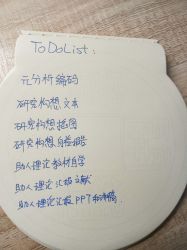 ToDoList:
元分析编码
研究构想文本
研究构想插图
研究构想
助人理论教材自学
助人理论汇报文献
助人理论汇报PPT和讲稿